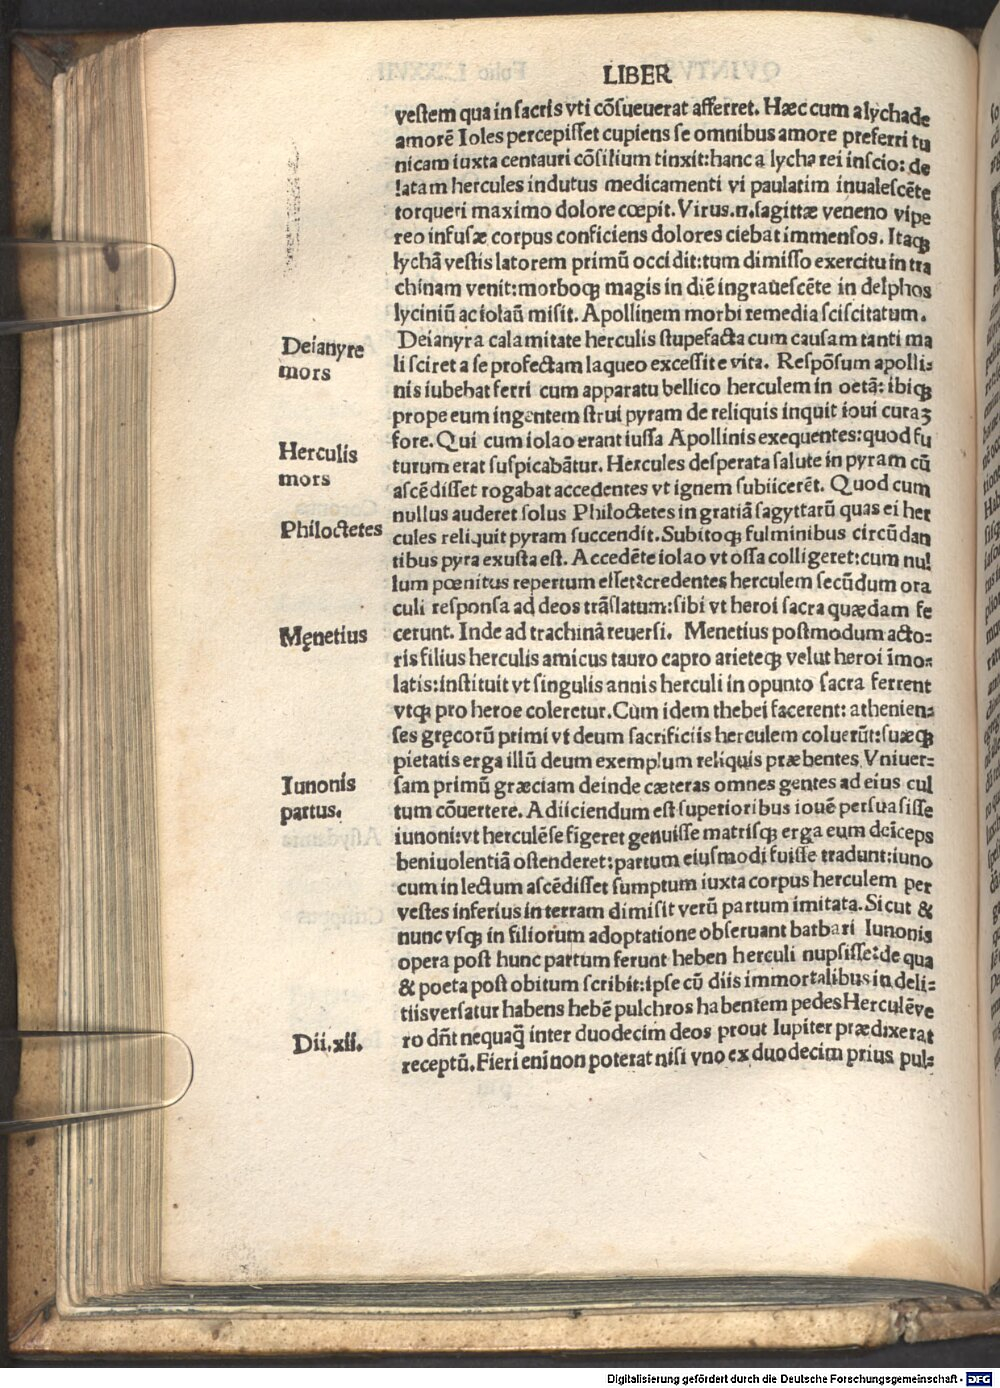 LIBER
vestem qua in sacris vti cōsueuerat afferret. Hæc cum a lychade
amorē Ioles percepisset cupiens se omnibus amore preferri tu
nicam iuxta centauri cōsilium tinxit: hanc a lycha rei inscio: de
latam hercules indutus medicamenti vi paulatim inualescēte
torqueri maximo dolore cœpit. Virus.n.sagittæ veneno vipe
reo infusæ corpus conficiens dolores ciebat immensos. Itaqꝫ
lychā vestis latorem primū occidit: tum dimisso exercitu in tra
chinam venit: morboqꝫ magis in diē ingrauescēte in delphos
lyciniū ac iolaū misit. Apollinem morbi remedia sciscitatum.
Deianyre
mors
Deianyra calamitate herculis stupefacta cum causam tanti ma
li sciret a se profectam laqueo excessit e vita. Respōsum apolli-
nis iubebat ferri cum apparatu bellico herculem in oetā: ibiqꝫ
prope eum ingentem strui pyram de reliquis inquit ioui curaꝫ
fore. Qui cum iolao erant iussa Apollinis exequentes: quod fu
Herculis
mors
turum erat suspicabātur. Hercules desperata salute in pyram cū
ascēdisset rogabat accedentes vt ignem subiicerēt. Quod cum
nullus auderet solus Philoctetes in gratiā sagyttarū quas ei her
Philoctetes
cules reliquit pyram succendit. Subitoqꝫ fulminibus circūdan
tibus pyra exusta est. Accedēte iolao vt ossa colligeret: cum nul
lum pœnitus repertum esset: credentes herculem secūdum ora
culi responsa ad deos trāslatum: sibi vt heroi sacra quædam fe
Męnetius
cerunt. Inde ad trachinā reuersi. Menetius postmodum acto-
ris filius herculis amicus tauro capro arieteqꝫ velut heroi īmo-
latis: instituit vt singulis annis herculi in opunto sacra ferrent
vtqꝫ pro heroe coleretur. Cum idem thebei facerent: athenien-
ses gręcorū primi vt deum sacrificiis herculem coluerūt: suæqꝫ
pietatis erga illū deum exemplum reliquis præbentes Vniuer-
Iunonis
partus.
sam primū græciam deinde cæteras omnes gentes ad eius cul
tum cōuertere. Adiiciendum est superioribus iouē persuasisse
iunoni: vt herculē se figeret genuisse matrisqꝫ erga eum deīceps
beniuolentiā ostenderet: partum eiusmodi fuisse tradunt: iuno
cum in lectum ascēdisset sumptum iuxta corpus herculem per
vestes inferius in terram dimisit verū partum imitata. Sicut &
nunc vsqꝫ in filiorum adoptatione obseruant barbari Iunonis
opera post hunc partum ferunt heben herculi nupsisse: de qua
& poeta post obitum scribit: ipse cū diis immortalibus in deli-
tiis versatur habens hebē pulchros habentem pedes Herculē ve
Dii.xii.
ro dn̄t nequaq̄ inter duodecim deos prout Iupiter prædixerat
receptū. Fieri enī non poterat nisi vno ex duodecim prius pul-
Digitalisierung gefördert durch die Deutsche Forschungsgemeinschaft - DFG